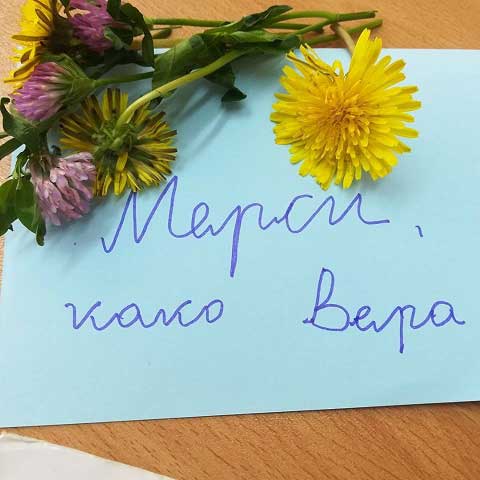 Мерси,
како Вера